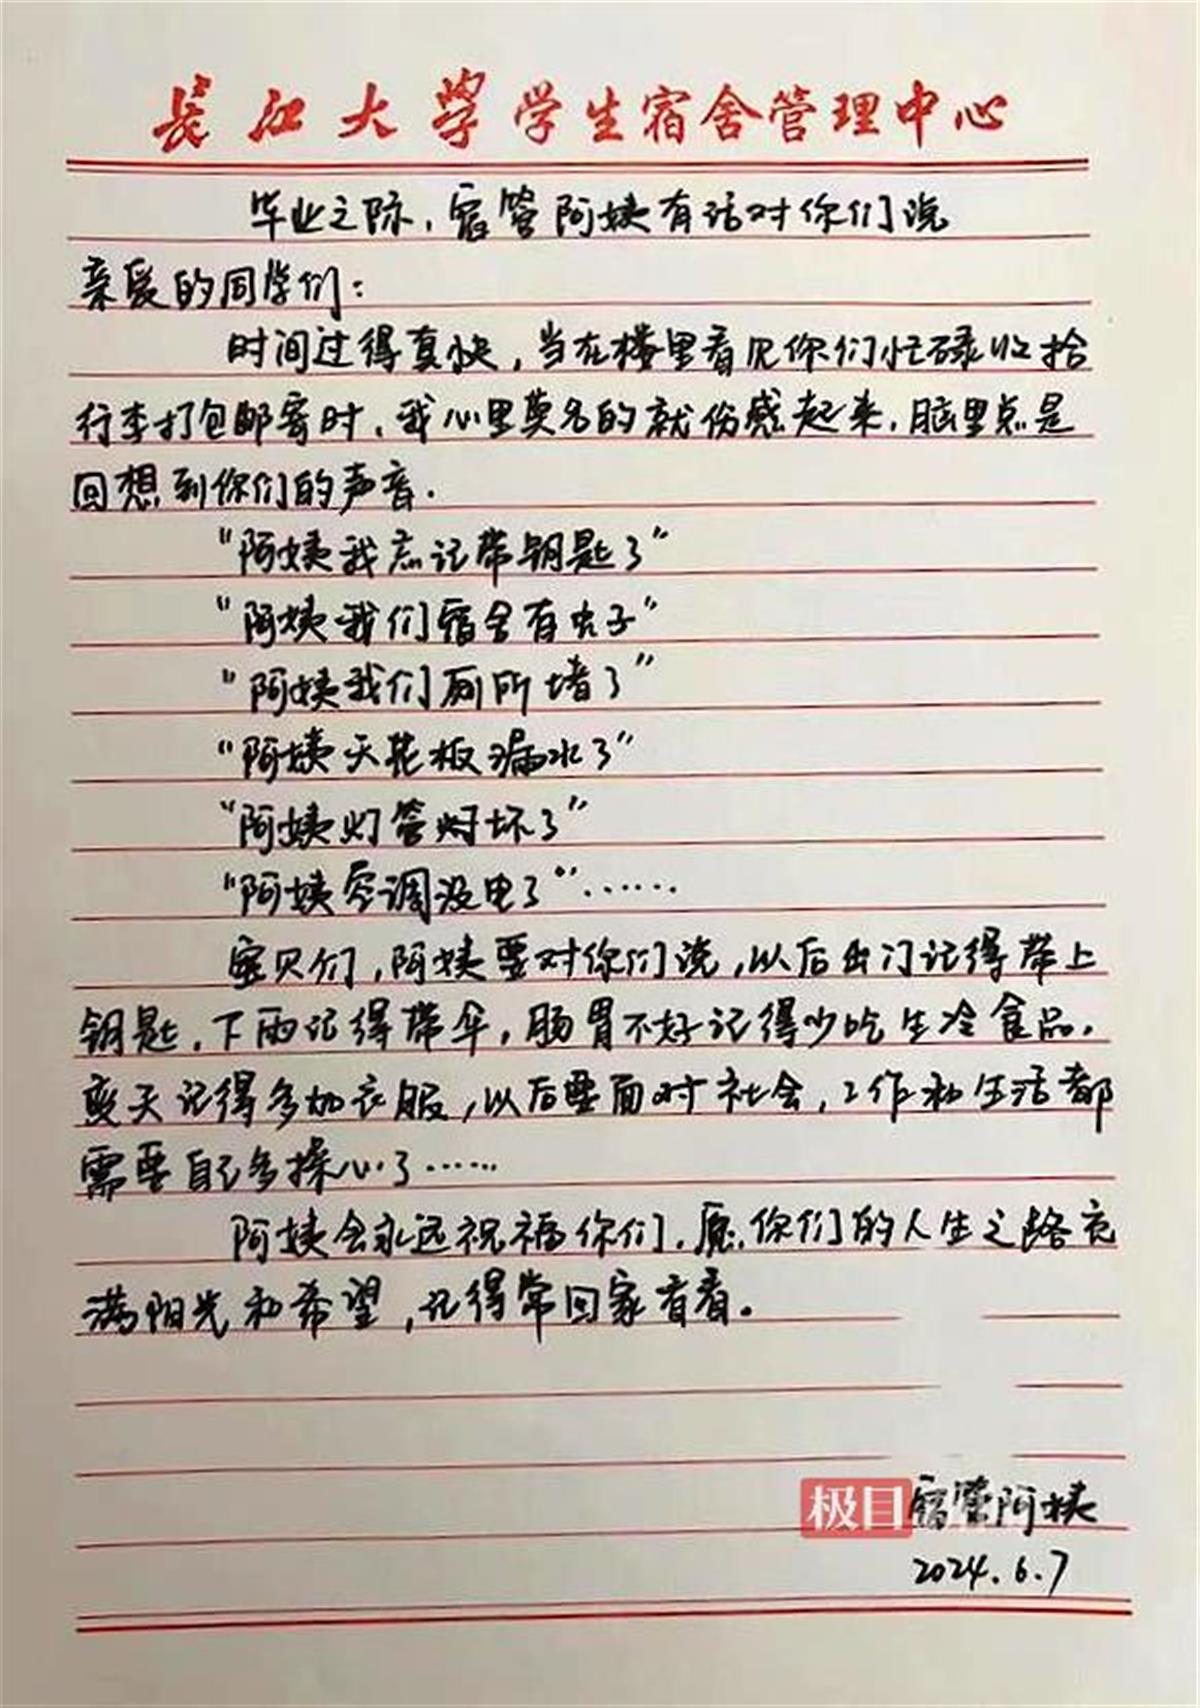 长江大学学生宿舍管理中心
毕业之际，宿管阿姨有话对你们说
亲爱的同学们：
时间过得真快，当在楼里看见你们忙碌收拾
行李打包邮寄时，我心里莫名的就伤感起来，脑里总是
回想到你们的声音．
“阿姨我忘记带钥匙了”
“阿姨我们宿舍有虫子”
“阿姨我们厕所堵了”
“阿姨天花板漏水了”
“阿姨灯管灯坏了”
“阿姨空调没电了”……
宝贝们，阿姨要对你们说，以后出门记得带上
钥匙，下雨记得带伞，肠胃不好记得少吃生冷食品，
变天记得多加衣服，以后要面对社会，工作和生活都
需要自己多操心了……
阿姨会永远祝福你们，愿你们的人生之路充
满阳光和希望，记得常回家看看。
极目
宿管阿姨
2024.6.7